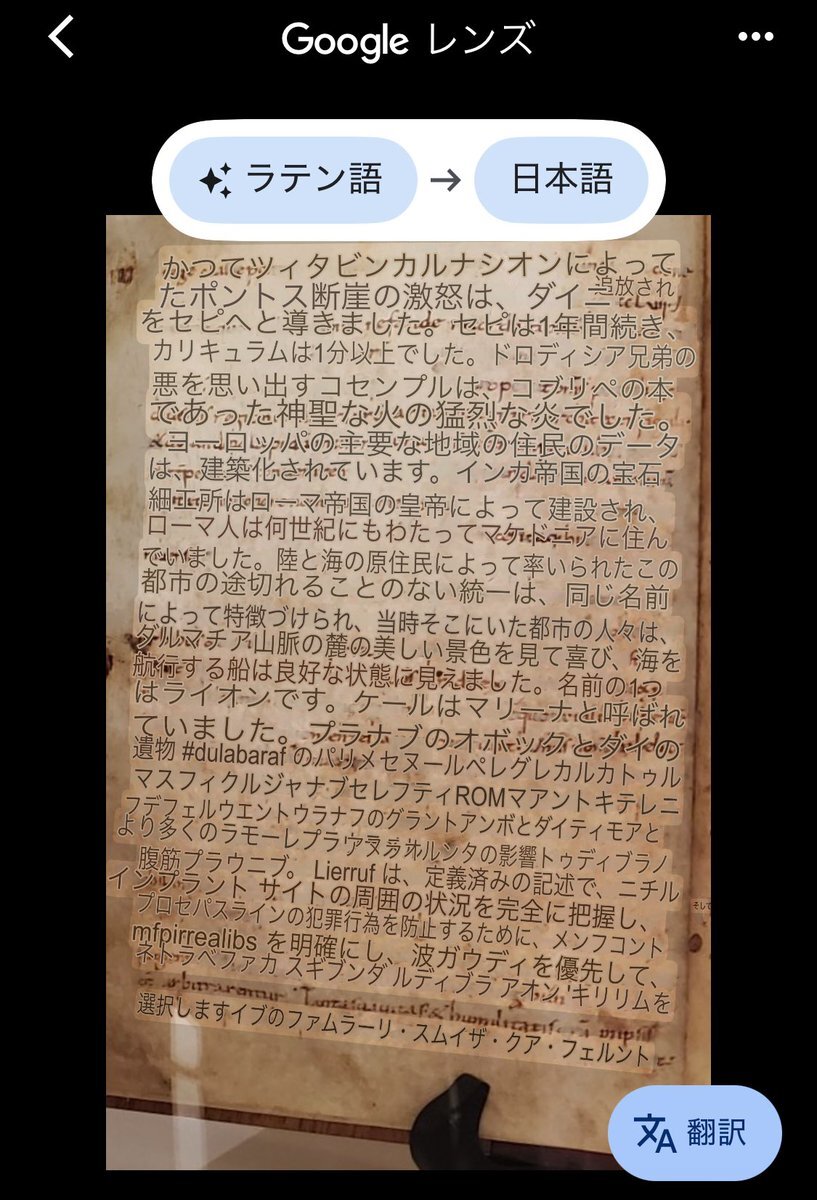 Google レンズ
ラテン語 → 日本語
かつてツィタビンカルナシオンによって
たポントス断崖の激怒は、ダイニ 追放され
をセピへと導きました。セピは1年間続き、
カリキュラムは1分以上でした。ドロディシア兄弟の
悪を思い出すコセンプルは、コブリペの本
であった神聖な火の猛烈な炎でした。
ヨーロッパの主要な地域の住民のデータ
は、建築化されています。インカ帝国の宝石
細工所はローマ帝国の皇帝によって建設され、
ローマ人は何世紀にもわたってマケドニアに住ん
でいました。陸と海の原住民によって率いられたこの
都市の途切れることのない統一は、同じ名前
によって特徴づけられ、当時そこにいた都市の人々は、
ダルマチア山脈の麓の美しい景色を見て喜び、海を
航行する船は良好な状態に見えました。名前の1つ
はライオンです。ケールはマリーナと呼ばれ
ていました。プラナブのオボックとダイの
遺物 #dulabaraf のパリメセヌールペレグレカルカトゥル
マスフィクルジャナブセレフティROMマアントキテレニ
フデフェルウエントウラナフのグラントアンボとダイティモアと
より多くのラモーレプラ
の影響トゥディブラノ
腹筋プラウニブ。Lierruf は、定義済みの記述で、ニチル
インプラント サイトの周囲の状況を完全に把握し、
プロセパスラインの犯罪行為を防止するために、メンフコント
そして
mfpirrealibs を明確にし、波ガウディを優先して、
ネトラベファカ スギブンダ ルディブラ アオン 'キリリムを
選択しますイブのファムラーリ・スムイザ・クア・フェルント
翻訳